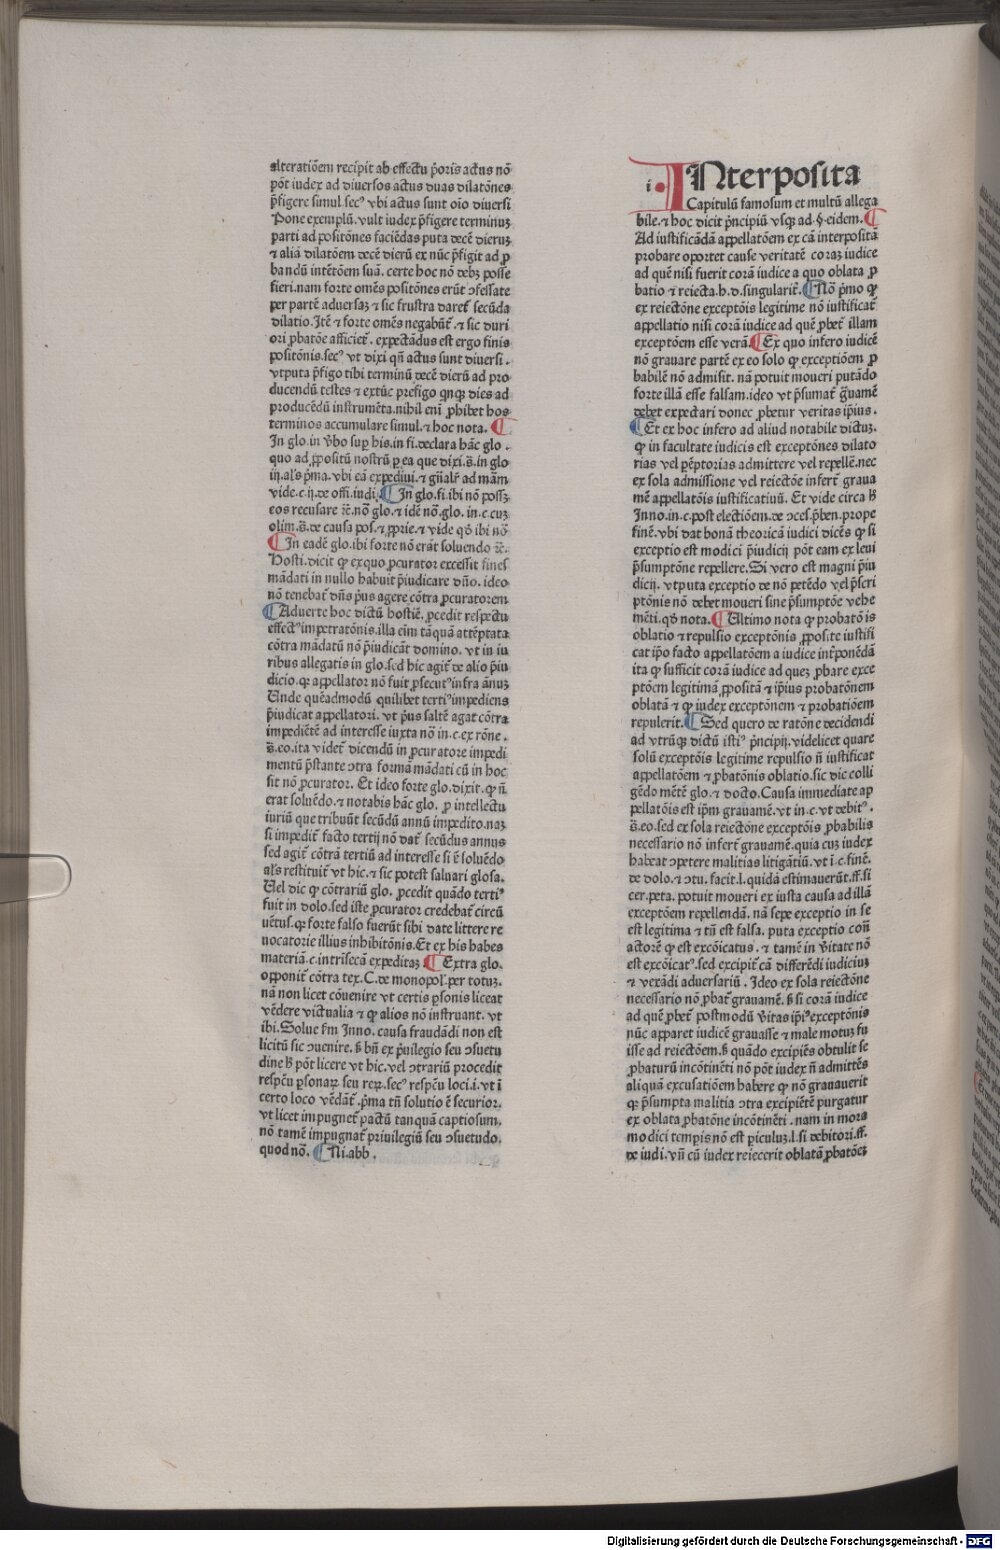 alteratiōem recipit ab effectu p̄oris actus nō
pōt iudex ad diuersos actus duas dilatōnes
p̄figere simul.secꝰ vbi actus sunt oīo diuersi
Pone exemplū. vult iudex p̄figere terminuꝫ
parti ad positōnes faciēdas puta decē dieruꝫ
⁊ aliā dilatōem decē dierū ex nūc p̄figit ad ꝓ
bandū intētōem suā. certe hoc nō debꝫ posse
fieri.nam forte omēs positōnes erūt ɔfessate
per partē aduersaꝫ ⁊ sic frustra daret᷑ secūda
dilatio. Itē ⁊ forte omēs negabūt᷑. ⁊ sic duri
ori ꝓbatōe afficiet᷑. expectādus est ergo finis
positōnis.secꝰ vt dixi qn̄ actus sunt diuersi.
vtputa p̄figo tibi terminū decē dierū ad pro
ducendū testes ⁊ extūc prefigo qnqꝫ dies ad
producēdū instrumēta.nihil enī ꝓhibet hos
terminos accumulare simul.⁊ hoc nota. ¶
In glo.in v̄bo suꝑ his.in fi.declara hāc glo.
quo ad ꝓpositū nostrū ꝑ ea que dixi.s̄.in glo
iij.al's p̄ma.vbi eā expediui.⁊ gn̄alr̄ ad mām
vide.c.ij.de offi.iudi. ¶ In glo.fi.ibi nō possꝫ
eos recusare ⁊c̄.nō glo.⁊ idē nō.glo.in.c.cuꝫ
olim.s̄.de causa pos.⁊ ꝓprie.⁊ vide qd̄ ibi nō
¶ In eadē glo.ibi forte nō erāt soluendo ⁊c̄.
Hosti.dicit ꝙ exquo ꝓcurator excessit fines
mādati in nullo habuit p̄iudicare dn̄o. ideo
nō tenebat᷑ dn̄s p̄us agere cōtra ꝓcuratorem
¶ Aduerte hoc dictū hostiē. ꝓcedit respectu
effectꝰ impetratōnis.illa eīm tāquā attēptata
cōtra mādatū nō p̄iudicāt domino. vt in iu
ribus allegatis in glo.sed hic agit᷑ de alio p̄iu
dicio.qꝛ appellator nō fuit ꝓsecutꝰ infra ānuꝫ
Unde quēadmodū quilibet tertiꝰ impediens
p̄iudicat appellatori. vt p̄us saltē agat cōtra
impediētē ad interesse iuxta nō in.c.ex rōne.
s̄.eo.ita videt᷑ dicendū in ꝓcuratore impedi
mentū p̄stante ɔtra formā mādati cū in hoc
sit nō ꝓcurator. Et ideo forte glo.dixit.qꝛ n̄
erat soluēdo.⁊ notabis hāc glo. ꝓ intellectu
iuriū que tribuūt secūdū annū impedito.naꝫ
si impedit᷑ facto tertij nō dat᷑ secūdus annus
sed agit᷑ cōtrā tertiū ad interesse si ē soluēdo
al's restituit᷑ vt hic.⁊ sic potest saluari glosa.
Vel dic ꝙ cōtrariū glo. ꝓcedit quādo tertiꝰ
fuit in dolo.sed iste ꝓcurator credebat᷑ circū
uētus.qꝛ forte falso fuerūt sibi date littere re
uocatorie illius inhibitōnis.Et ex his habes
materiā.c.intrīsecā expeditaꝫ ¶ Extra glo.
opponit᷑ cōtra tex.C.de monopol'.per totuꝫ.
nā non licet cōuenire vt certis ꝑsonis liceat
vēdere victualia ⁊ ꝙ alios nō instruant. vt
ibi.Solue ẜm Inno. causa fraudādi non est
licitū sic ɔuenire. ẜ bn̄ ex p̄uilegio seu ɔsuetu
dine ẜ pōt licere vt hic.vel ɔtrariū procedit
respc̄u ꝑsonaꝝ seu reꝝ.secꝰ respc̄u loci.i.vt ī
certo loco vēdāt᷑. p̄ma tn̄ solutio ē securior.
vt licet impugnet᷑ pactū tanquā captiosum.
nō tamē impugnat᷑ priuilegiū seu ɔsuetudo.
quod nō. ¶ Ni.abb.
i INterposita
Capitulū famosum et multū allega
bile.⁊ hoc dicit p̄ncipiū vsqꝫ ad.§.eidem. ¶
Ad iustificādā appellatōem ex cā interposita
probare oportet cause veritatē coraꝫ iudice
ad quē nisi fuerit corā iudice a quo oblata ꝓ
batio ⁊ reiecta.h.d.singularit᷑. ¶ Nō p̄mo ꝙ
ex reiectōne exceptōis legitime nō iustificat᷑
appellatio nisi corā iudice ad quē ꝓbet᷑ illam
exceptōem esse verā. ¶ Ex quo infero iudicē
nō grauare partē ex eo solo ꝙ exceptiōem ꝓ
babilē nō admisit. nā potuit moueri putādo
forte illā esse falsam.ideo vt p̄sumat᷑ grauamē
debet expectari donec ꝓbetur veritas ip̄ius.
¶ Et ex hoc infero ad aliud notabile dictuꝫ.
ꝙ in facultate iudicis est exceptōnes dilato
rias vel ꝑēptorias admittere vel repellē.nec
ex sola admissione vel reiectōe infert᷑ graua
mē appellatōis iustificatiuū. Et vide circa ẜ
Inno.in.c.post electiōem.de ɔces.p̄ben.prope
finē.vbi dat bonā theoricā iudici dicēs ꝙ si
exceptio est modici p̄iudicij pōt eam ex leui
p̄sumptōne repellere.Si vero est magni p̄iu
dicij. vtputa exceptio de nō petēdo vel p̄scri
ptōnis nō debet moueri sine p̄sumptōe vehe
mēti.qd̄ nota. ¶ Ultimo nota ꝙ probatōis
oblatio ⁊ repulsio exceptōnis ꝓposite iustifi
cat ip̄o facto appellatōem a iudice int̄ponēdā
ita ꝙ sufficit corā iudice ad queꝫ ꝓbare exce
ptōem legitimā ꝓpositā ⁊ ip̄ius probatōnem
oblatā ⁊ ꝙ iudex exceptōnem ⁊ probatiōem
repulerit. ¶ Sed quero de ratōne decidendi
ad vtrūqꝫ dictū istiꝰ p̄ncipij.videlicet quare
solū exceptōis legitime repulsio n̄ iustificat
appellatōem ⁊ ꝓbatōnis oblatio.sic dic colli
gēdo mētē glo.⁊ docto.Causa immediate ap
pellatōis est ip̄m grauamē.vt in.c.vt debitꝰ.
s̄.eo.sed ex sola reiectōne exceptōis ꝓbabilis
necessario nō infert᷑ grauamē.quia cuꝫ iudex
habeat ɔpetere malitias litigātiū.vt ī.c.finē.
de dolo.⁊ ɔtu. facit.l.quidā estimauerūt.ff.si
cer.peta. potuit moueri ex iusta causa ad illā
exceptōem repellendā. nā sepe exceptio in se
est legitima ⁊ tn̄ est falsa. puta exceptio con̄
actorē ꝙ est excōicatus. ⁊ tamē in v̄itate nō
est excōicatꝰ.sed excipit᷑ cā differēdi iudiciuꝫ
⁊ vexādi adversariū. Ideo ex sola reiectōne
necessario nō ꝓbat᷑ grauamē. ẜ si corā iudice
ad quē ꝓbet᷑ postmodū v̄itas ip̄iꝰ exceptōnis
nūc apparet iudicē grauasse ⁊ male motuꝫ fu
isse ad reiectōem.ẜ quādo excipiēs obtulit se
ꝓbaturū incōtinēti nō pōt iudex n̄ admittēs
aliquā excusatiōem habere ꝙ nō grauauerit
qꝛ p̄sumpta malitia ɔtra excipiētē purgatur
ex oblata ꝓbatōne incōtinēti. nam in mora
modici tempis nō est ꝑiculuꝫ.l.si debitori.ff.
de iudi.vn̄ cū iudex reiecerit oblatā ꝓbatōeꝫ
Digitalisierung gefördert durch die Deutsche Forschungsgemeinschaft - DFG